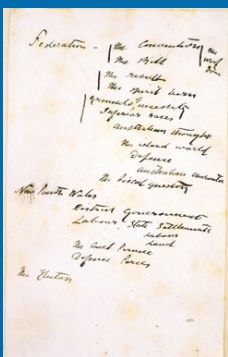 Federation - The Convention
The Bill
The result
The Burt
Grounds necessity
Inferior races
Australian thought
The island world
Defence
Australian
The fiscal question
New South Wales
District Government
Labour, State Settlements
Labour
Land
The Civil Service
Defence Forces
The Elections